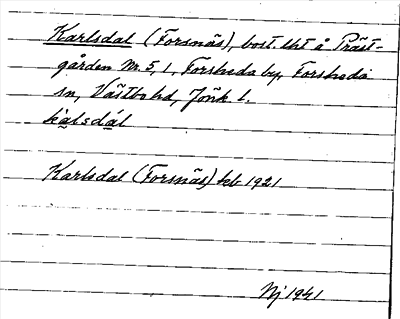 Karlsdal (Forsnäs), bost.lht å Präst-
gården Nr. 5, 1, Forsheda by, Forsheda
sn, Västbo hd, Jönk l.
ka̤lsdál
Karlsdal (Forsnäs) kb 1921
Nj 1941